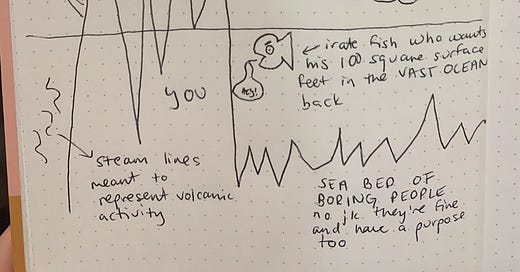 irate fish who wants
his 100 square surface
feet in the VAST OCEAN
back
Hey!
you
steam lines
meant to
represent volcanic
activity
SEA BED OF
BORING PEOPLE
no jk they're fine
and have a purpose
too